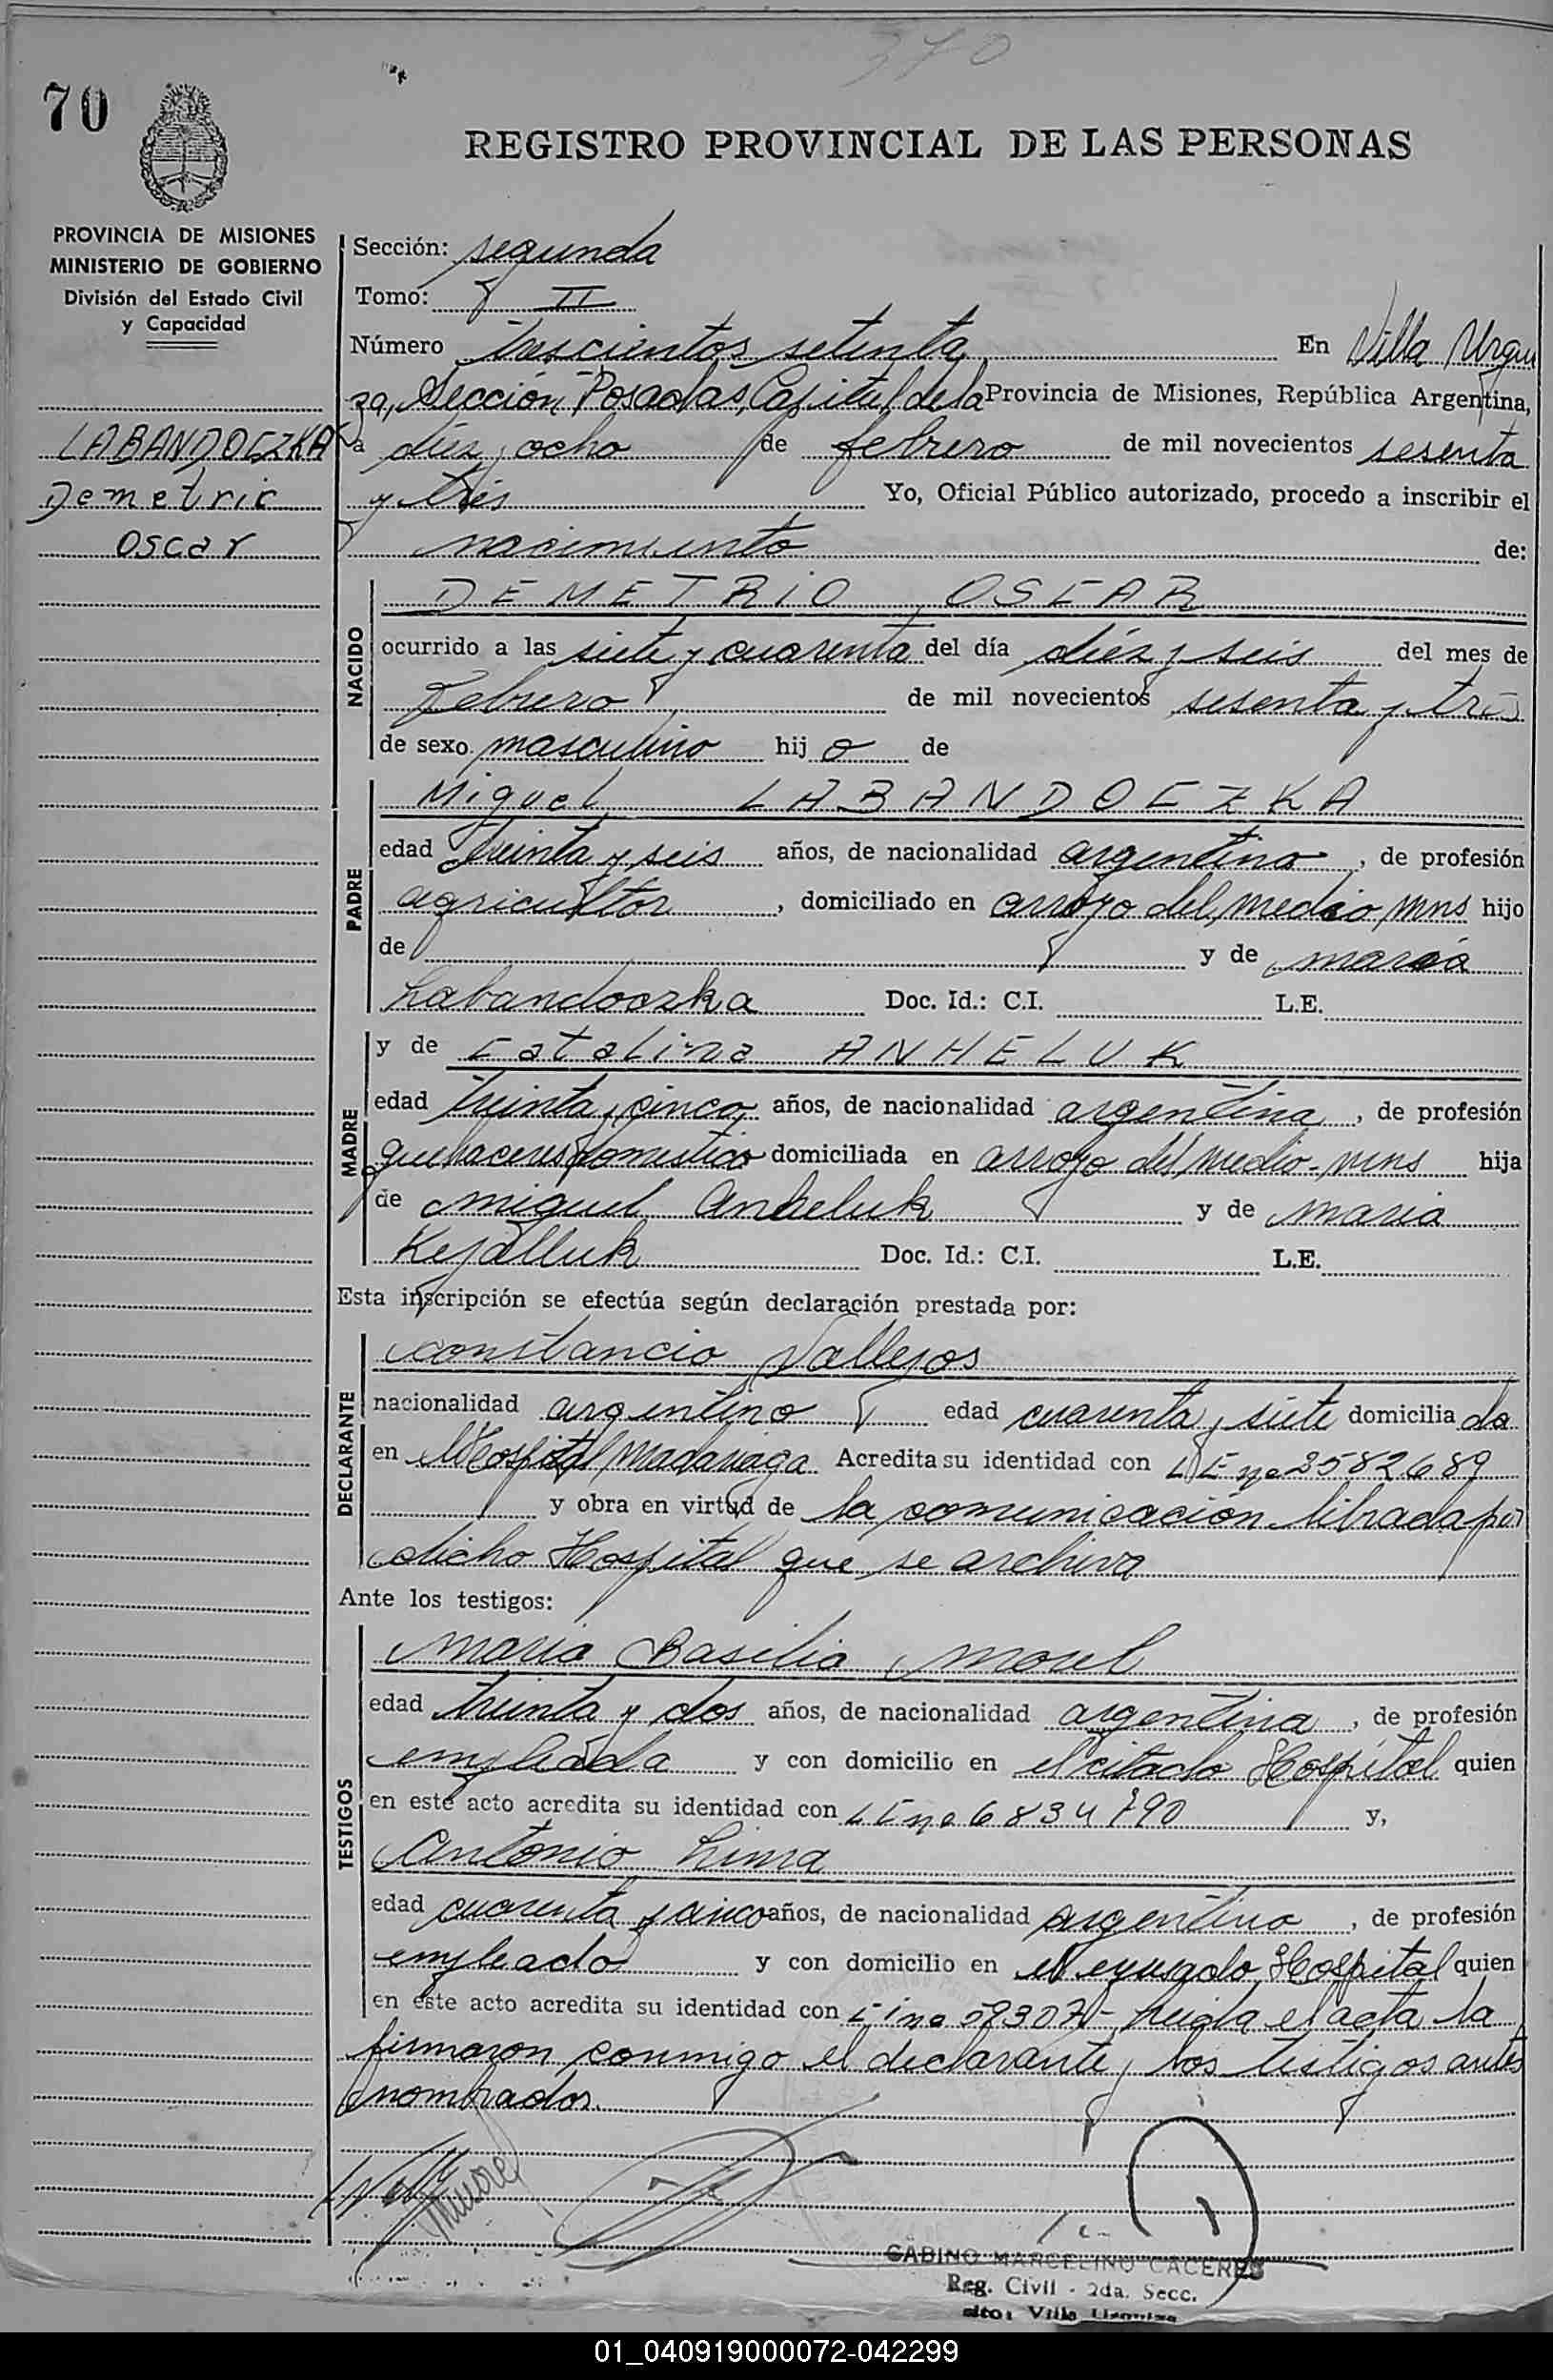 370
70
REGISTRO PROVINCIAL DE LAS PERSONAS
PROVINCIA DE MISIONES
MINISTERIO DE GOBIERNO
División del Estado Civil
y Capacidad
LABANDOCZKA
Demetrio
Oscar
Sección: segunda
Tomo: II
Número trescientos setenta En Villa Urqui
za, Sección Posadas, Capital de la Provincia de Misiones, República Argentina,
a diez y ocho de febrero de mil novecientos sesenta
y tres Yo, Oficial Público autorizado, procedo a inscribir el
nacimiento de:
NACIDO
DEMETRIO OSCAR
ocurrido a las siete y cuarenta del día diéz y seis del mes de
Febrero de mil novecientos sesenta y tres
de sexo masculino hij o de
PADRE
Miguel LABANDOCZKA
edad treinta y seis años, de nacionalidad argentino, de profesión
agricultor, domiciliado en arroyo del medio, mns hijo
de y de maria
Labandoczka Doc. Id.: C.I. L.E.
MADRE
y de Catalina ANHELUK
edad treinta y cinco años, de nacionalidad argentina, de profesión
quehaceres domestico domiciliada en arroyo del medio - mns hija
de miguel Anheluk y de maria
Doc. Id.: C.I. L.E.
Esta inscripción se efectúa según declaración prestada por:
DECLARANTE
constancio Vallejos
nacionalidad argentino edad cuarenta y siete domicilia do
en Hospital Madariaga Acredita su identidad con LE no 2582689
y obra en virtud de la comunicación librada por
dicho Hospital que se archiva
Ante los testigos:
TESTIGOS
Maria Basilia Morel
edad treinta y dos años, de nacionalidad argentina, de profesión
empleada y con domicilio en el citado Hospital quien
en este acto acredita su identidad con LE no 6834790 y,
Antonio Lima
edad cuarenta y cinco años, de nacionalidad argentino, de profesión
empleado y con domicilio en el Hospital quien
en este acto acredita su identidad con leida el acta la
firmaron conmigo el declarante y los testigos antes
nombrados.
Mmorel
GABINO MARCELINO CACERES
Reg. Civil - 2da. Secc.
Villa Urquiza
01_040919000072-042299